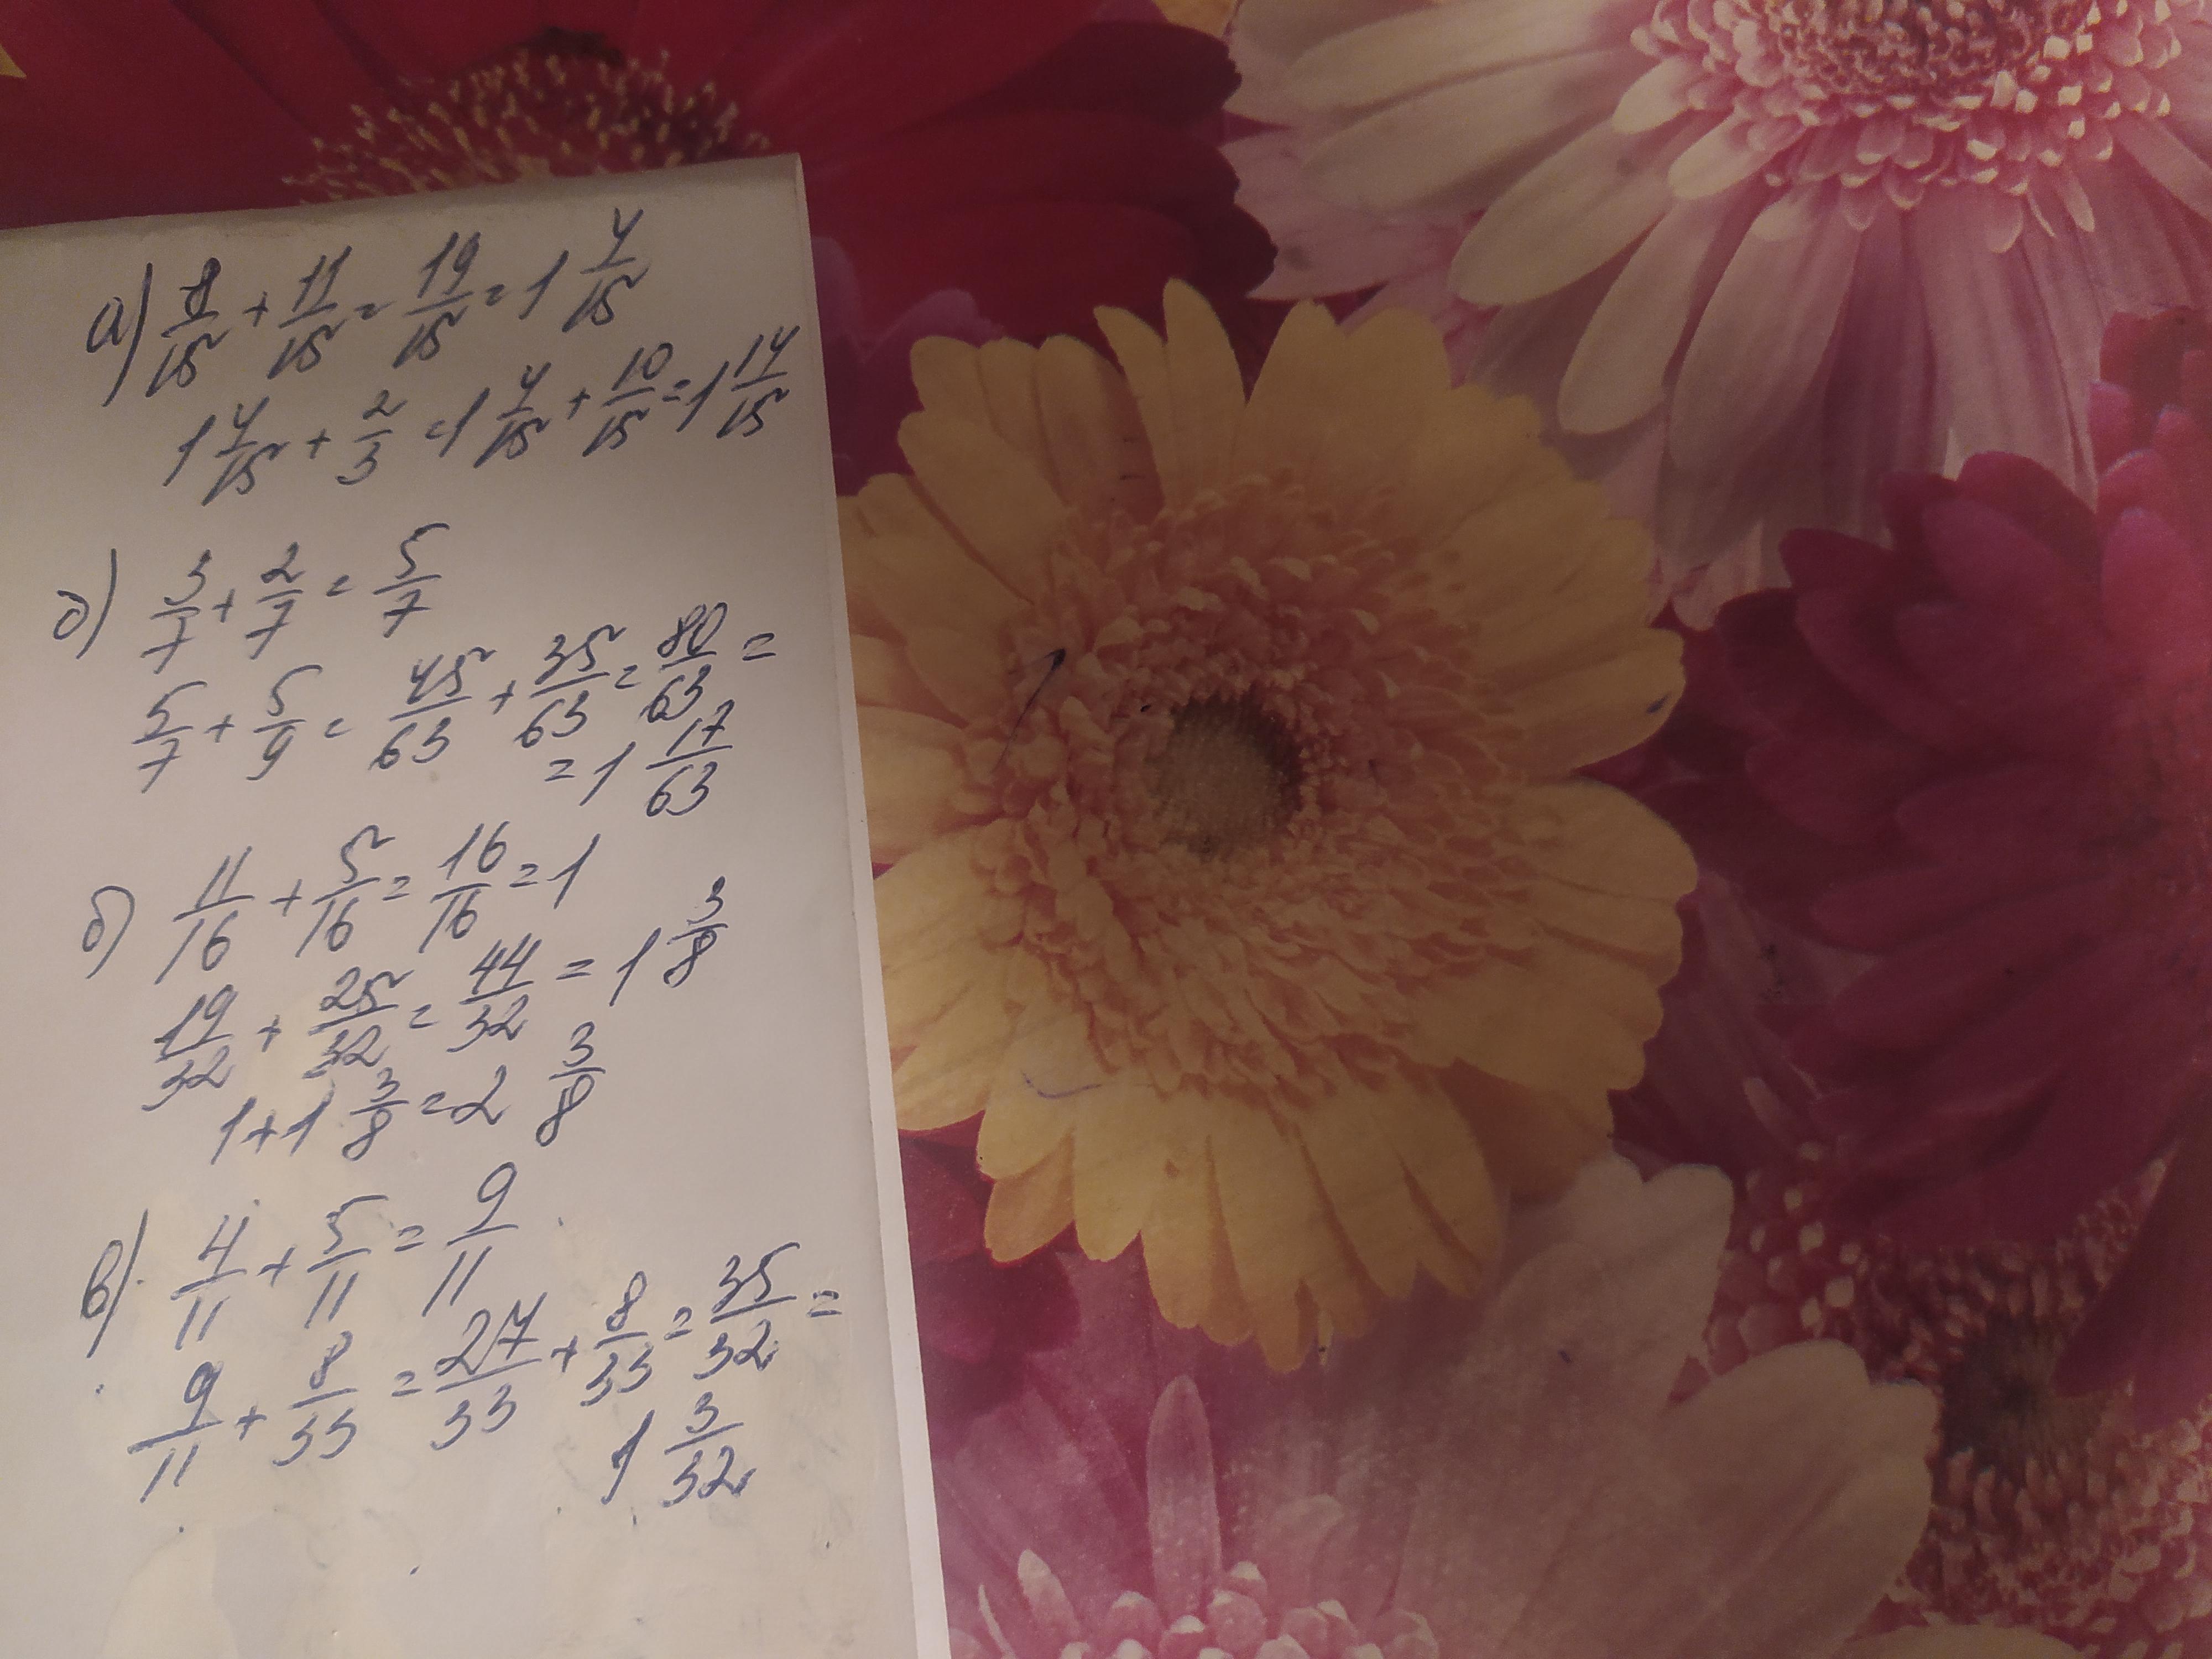 а) 8/15 + 11/15 = 19/15 = 1 4/15
1 4/15 + 2/3 = 1 4/15 + 10/15 = 1 14/15
д) 3/7 + 2/7 = 5/7
5/7 + 5/9 = 45/63 + 35/63 = 80/63 =
= 1 17/63
б) 11/16 + 5/16 = 16/16 = 1
19/32 + 25/32 = 44/32 = 1 3/8
1 + 1 3/8 = 2 3/8
в) 4/11 + 5/11 = 9/11
9/11 + 8/33 = 27/33 + 8/33 = 35/32 =
1 3/32